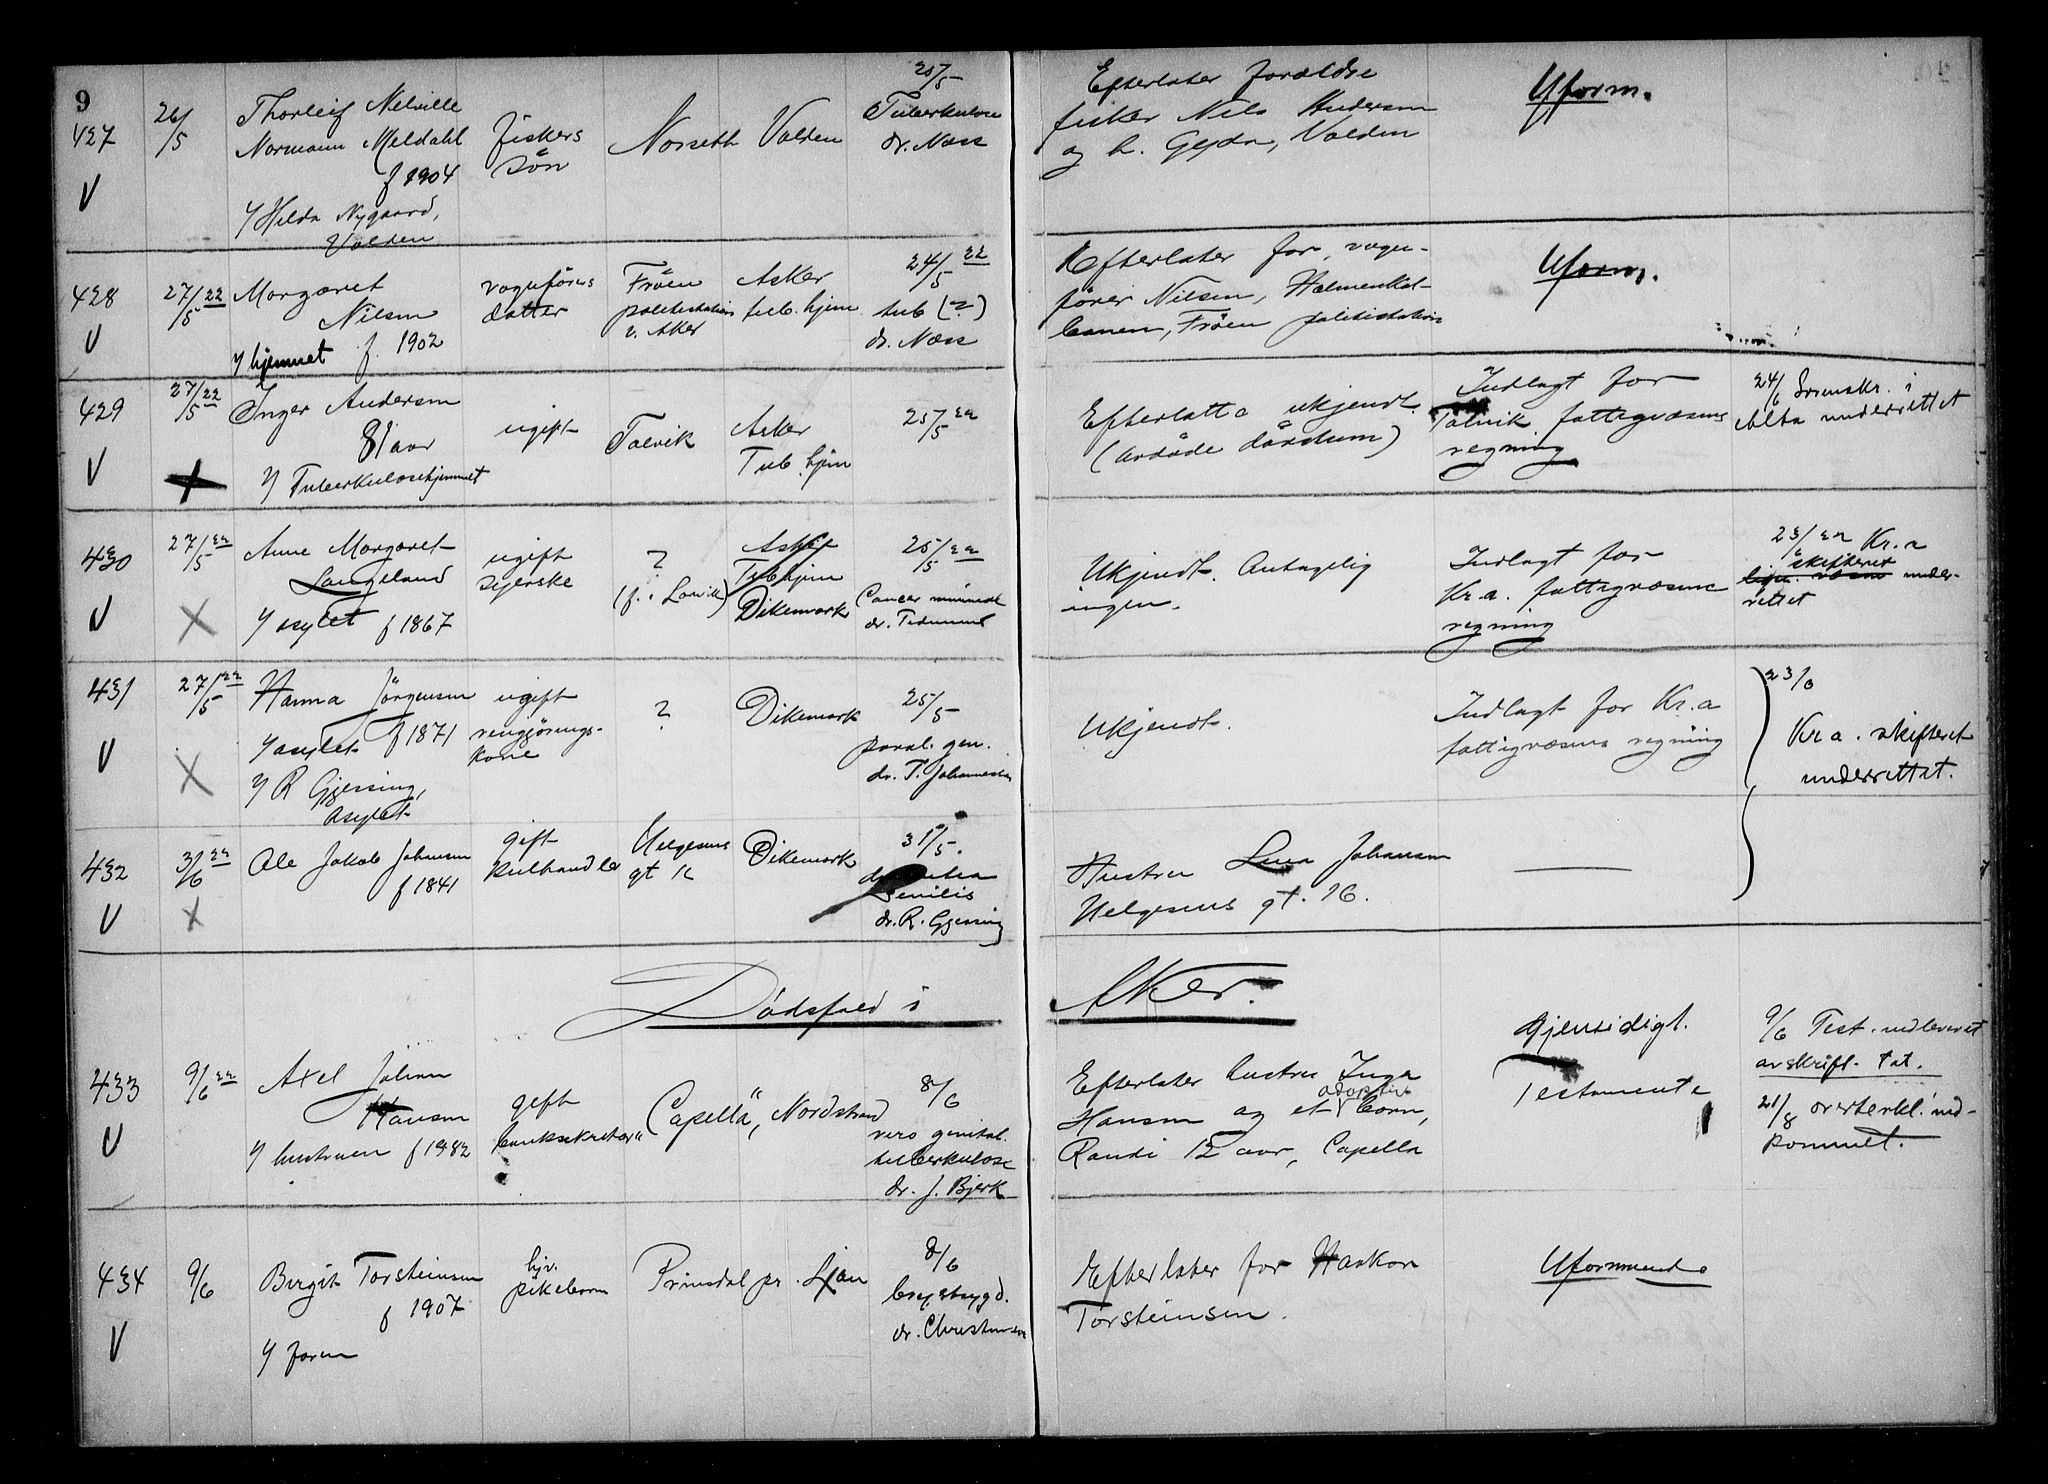 9
427
26/5
Thorleif Melville
Normann Meldahl
f 1904
Hilda Nygaard,
Valden
fiskers
søn
Norseth
Valden
25/5
Tuberkulose
dr. Næss
Efterlater forældre
fisker Nils Anderson
og h. Gyda, Valden
Uform.
428
27/5 22
Margaret
Nilsen
f. 1902
hjemmet
vognførers
datter
Frøen
politistation
v. Aker
Asker
tub. hjem
24/5 22
tub (?)
dr. Næss
Efterlater far, vogn-
fører Nilsen, Holmenkol-
banen, Frøen politistation
Uform.
429
27/5 22
Inger Andersen
81 aar
Tuberkulosehjemmet
ugift
Talvik
Asker
Tub. hjem
25/5 22
Efterlatte ukjendt.
(avdøde døvstum)
Indlagt for
Talvik fattigvæsens
regning
24/6 Sorenskr. i
Alta underrettet
430
27/5 22
Anne Margaret
Langeland
asylet f 1867
ugift
syerske
?
(f. i Larvik)
Asker
Tub hjem
Dikemark
25/5 22
Cancer
dr.
Ukjendt. Antagelig
ingen.
Indlagt for
Kr.a. fattigvæsens
regning
23/6 22 Kr.a
skifteret
under-
rettet
431
27/5 22
Hanna Jørgensen
asylet f 1871
R Gjessing,
Asylet
ugift
rengjørings-
kone
?
Dikemark
25/5
paral. gen.
dr. T. Johannesen
Ukjendt.
Indlagt for Kr.a
fattigvæsens regning
23/6
Kr.a. skifteret
underrettet.
432
3/6 22
Ole Jakob Johansen
f 1841
gift
kulhandler
Helgesens
gt 16
Dikemark
31/5.
senilis
dr. R. Gjessing
Hustru Lina Johansen
Helgesens gt. 16.
Dødsfald i Aker.
433
9/6 22
Axel Johan
Hansen
hustruen f 1882
gift
banksekretær
"Capella", Nordstrand
8/6
uro genital.
tuberkulose
dr. J. Bjerk
Efterlater hustru Inga
Hansen og et adoptiv barn,
Randi 12 aar, Capella
Gjensidigt.
Testamente
9/6 Test. indleveret
avskrift tat.
21/8 overterkl. ind-
kommet.
434
9/6
Birgit Torsteinsen
f 1907
faren
hjv.
pikebarn
Prinsdal pr. Ljan
8/6
brystsygd.
dr. Christensen
Efterlater far Haakon
Torsteinsen.
Uformuende